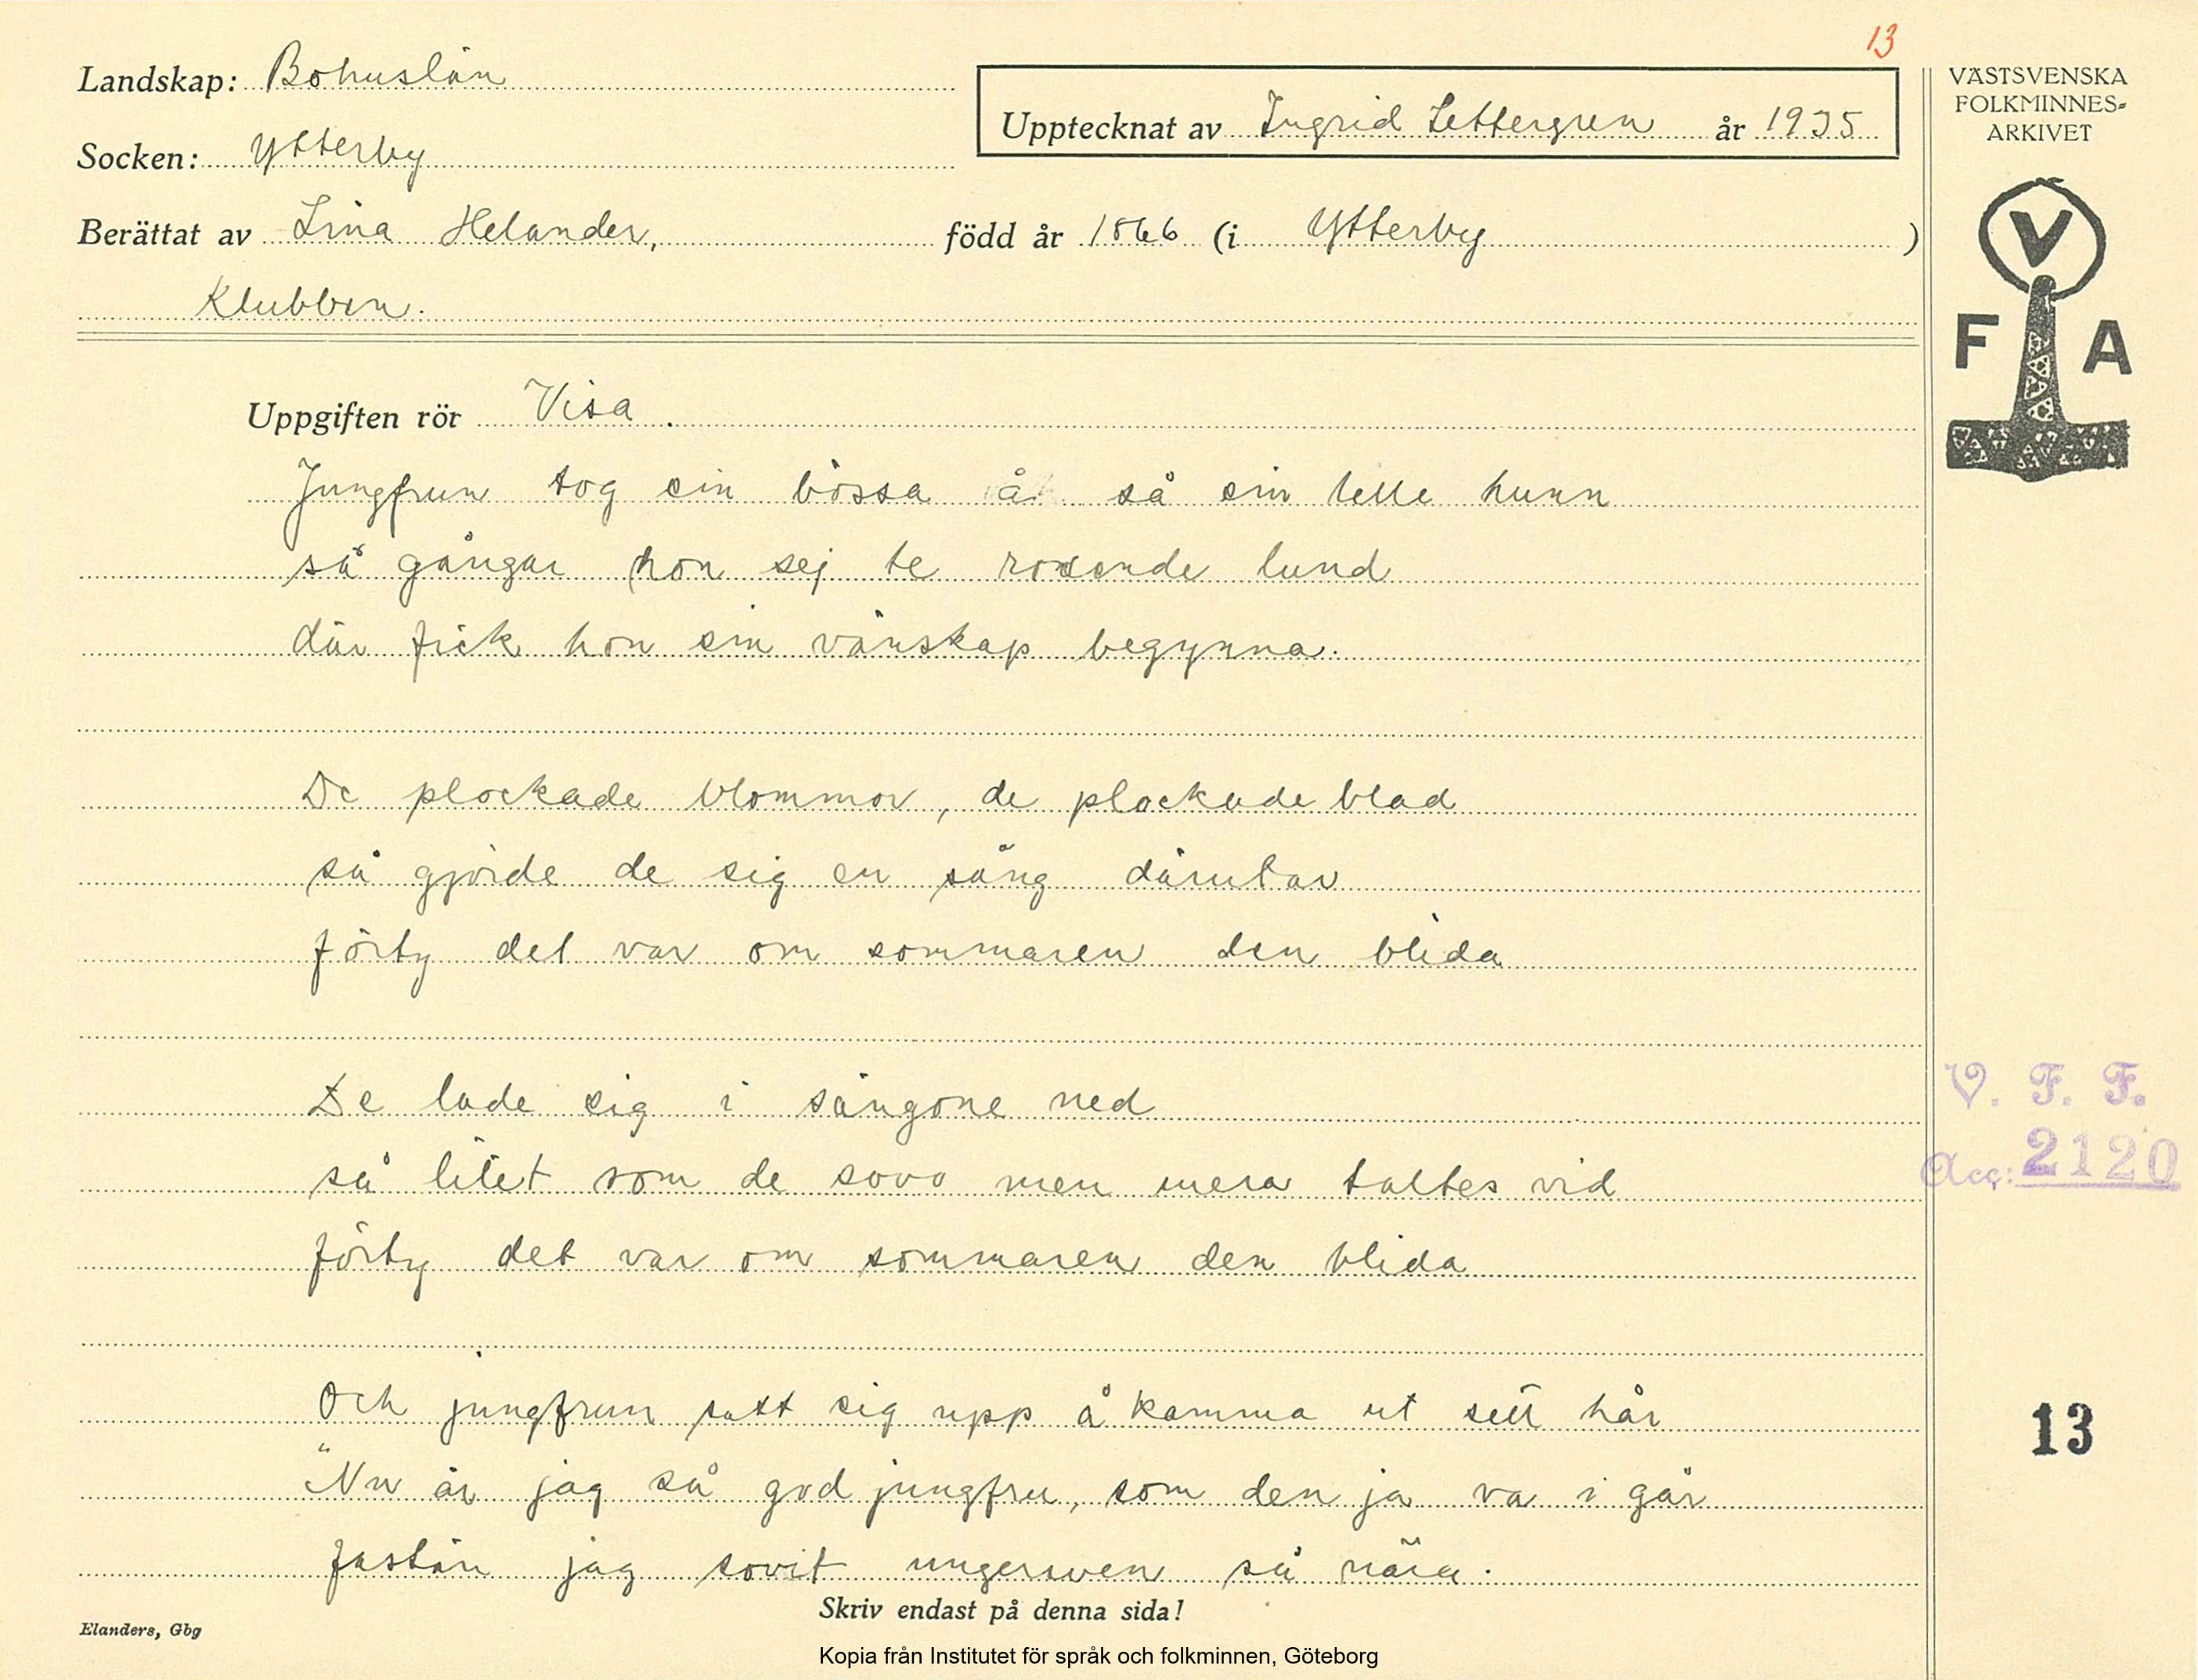 13
Landskap: Bohuslän
Upptecknat av Ingrid Lettergren år 1935
Socken: Ytterby
Berättat av Lina Helander, född år 1866 (i Ytterby )
Klubben.
VÄSTSVENSKA
FOLKMINNES-
ARKIVET
V
F A
Uppgiften rör Visa.
Jungfrun tog sin bössa å så sin lelle hunn
så gångar hon sej te rosende lund
där fick hon sin vänskap begynna.
De plockade blommor, de plockade blad
så gjorde de sig en säng därutav
förty det var om sommaren den blida
De lade sig i sängone ned
så litet som de sovo men mera taltes vid
förty det var om sommaren den blida
Och jungfrun satt sig upp å kamma ut sitt hår
"Nu är jag så god jungfru, som den ja va i går
fastän jag sovit ungersven så nära.
V. F. F.
Acc: 2120
13
Skriv endast på denna sida!
Elanders, Gbg
Kopia från Institutet för språk och folkminnen, Göteborg